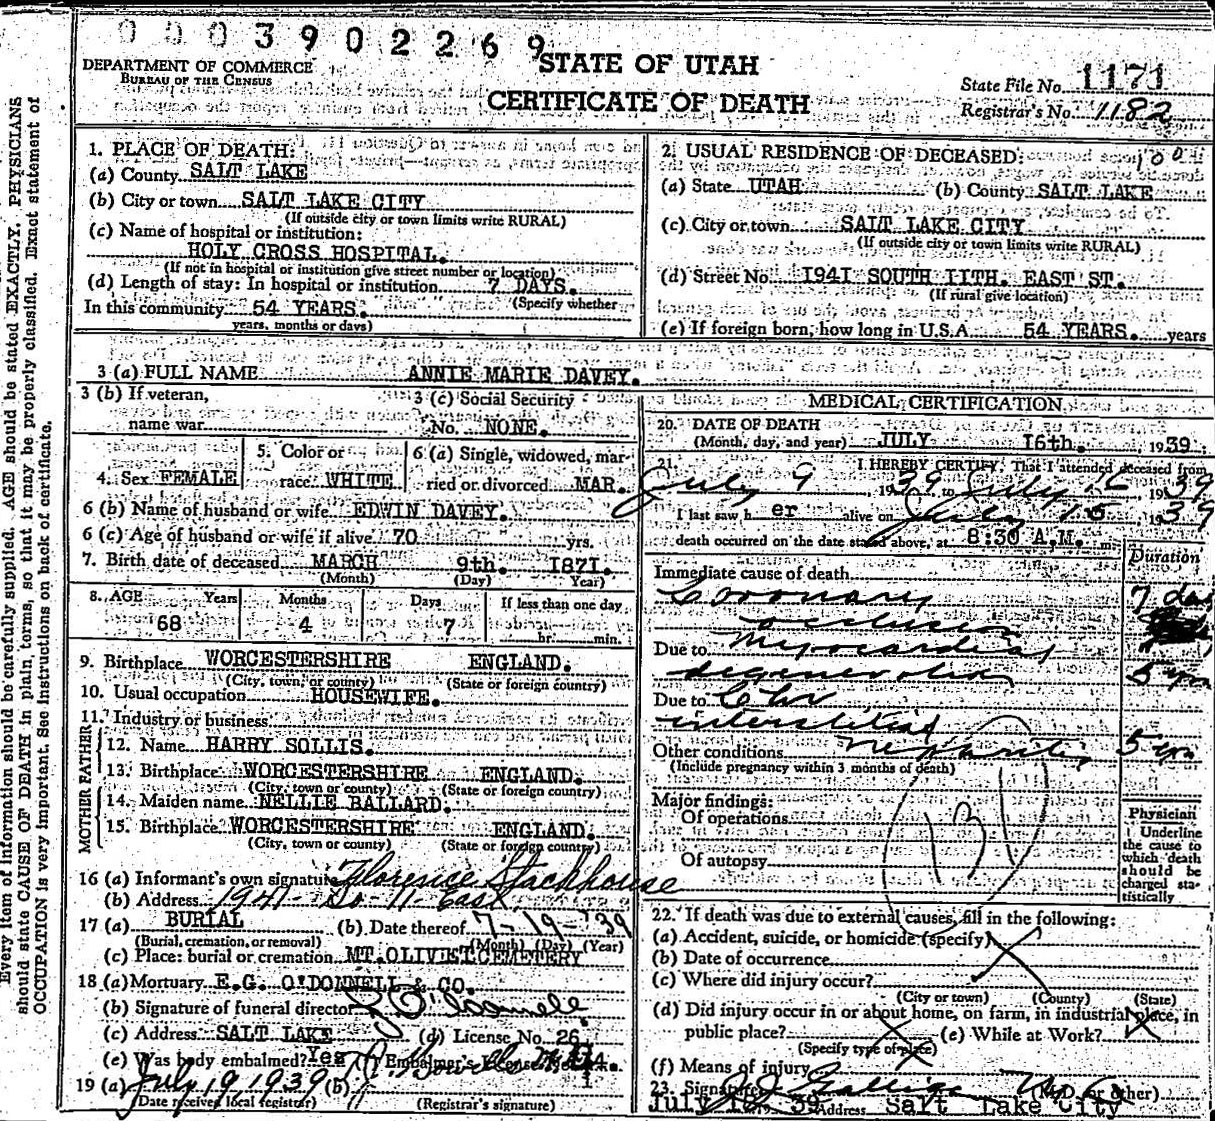 000390 2269
STATE OF UTAH
CERTIFICATE OF DEATH
DEPARTMENT OF COMMERCE
BUREAU OF THE CENSUS
State File No. 1171
Registrar's No. 1182
Every item of information should be carefully supplied. AGE should be stated EXACTLY. PHYSICIANS
should state CAUSE OF DEATH in plain, terms, so that it may be properly classified. Exact statement of
OCCUPATION is very important. See instructions on back of certificate.
1. PLACE OF DEATH:
(a) County SALT LAKE
(b) City or town SALT LAKE CITY
(If outside city or town limits write RURAL)
(c) Name of hospital or institution:
HOLY CROSS HOSPITAL.
(If not in hospital or institution give street number or location)
(d) Length of stay: In hospital or institution 7 DAYS.
(Specify whether
In this community 54 YEARS.
years, months or days)
2. USUAL RESIDENCE OF DECEASED:
(a) State UTAH (b) County SALT LAKE
(c) City or town SALT LAKE CITY
(If outside city or town limits write RURAL)
(d) Street No. 1941 SOUTH 11TH. EAST ST.
(If rural give location)
(e) If foreign born, how long in U.S.A. 54 YEARS. years
3 (a) FULL NAME ANNIE MARIE DAVEY.
3 (b) If veteran,
name war
3 (c) Social Security
No. NONE.
4. Sex FEMALE
5. Color or
race WHITE
6 (a) Single, widowed, mar-
ried or divorced MAR.
6 (b) Name of husband or wife EDWIN DAVEY.
6 (c) Age of husband or wife if alive 70 yrs.
7. Birth date of deceased MARCH 9th. 1871.
(Month) (Day) Year)
8. AGE Years Months Days If less than one day
68 4 7 hr. min.
9. Birthplace WORCESTERSHIRE ENGLAND.
(City, town, or county) (State or foreign country)
10. Usual occupation HOUSEWIFE.
11. Industry or business
FATHER
12. Name HARRY SOLLIS.
13. Birthplace WORCESTERSHIRE ENGLAND.
(City, town or county) (State or foreign country)
MOTHER
14. Maiden name NELLIE BALLARD.
15. Birthplace WORCESTERSHIRE ENGLAND.
(City, town or county) (State or foreign country)
16 (a) Informant's own signature Florence Stackhouse
(b) Address 1941 - So - 11 - East
17 (a) BURIAL (b) Date thereof 7-19-'39
(Burial, cremation, or removal) (Month) (Day) (Year)
(c) Place: burial or cremation MT. OLIVET CEMETERY
18 (a) Mortuary E.G. O'DONNELL & CO.
(b) Signature of funeral director O'Donnell
(c) Address SALT LAKE (d) License No. 26
(e) Was body embalmed? Yes (f) Embalmer's License No.
19 (a) July 19 1939 (b)
Date received local registrar) (Registrar's signature)
MEDICAL CERTIFICATION
20. DATE OF DEATH
(Month, day, and year) JULY 16th. , 1939.
21. I HEREBY CERTIFY, That I attended deceased from
July 9, 1939, to July 16, 1939
I last saw h er alive on July 15, 1939
death occurred on the date stated above, at 8:30 A.M. m.
Duration
Immediate cause of death
Coronary 7 days
occlusion
Due to Myocardial
degeneration 5 yrs
Due to Chr
interstitial
nephritis 5 yrs
Other conditions
(Include pregnancy within 3 months of death)
131
Major findings:
Of operations
Of autopsy
Physician
Underline
the cause to
which death
should be
charged sta-
tistically
22. If death was due to external causes, fill in the following:
(a) Accident, suicide, or homicide (specify)
(b) Date of occurrence
(c) Where did injury occur?
(City or town) (County) (State)
(d) Did injury occur in or about home, on farm, in industrial place, in
public place? (e) While at Work?
(Specify type of place)
(f) Means of injury
23. Signature (M.D. or other)
July 18, 39 Address Salt Lake City